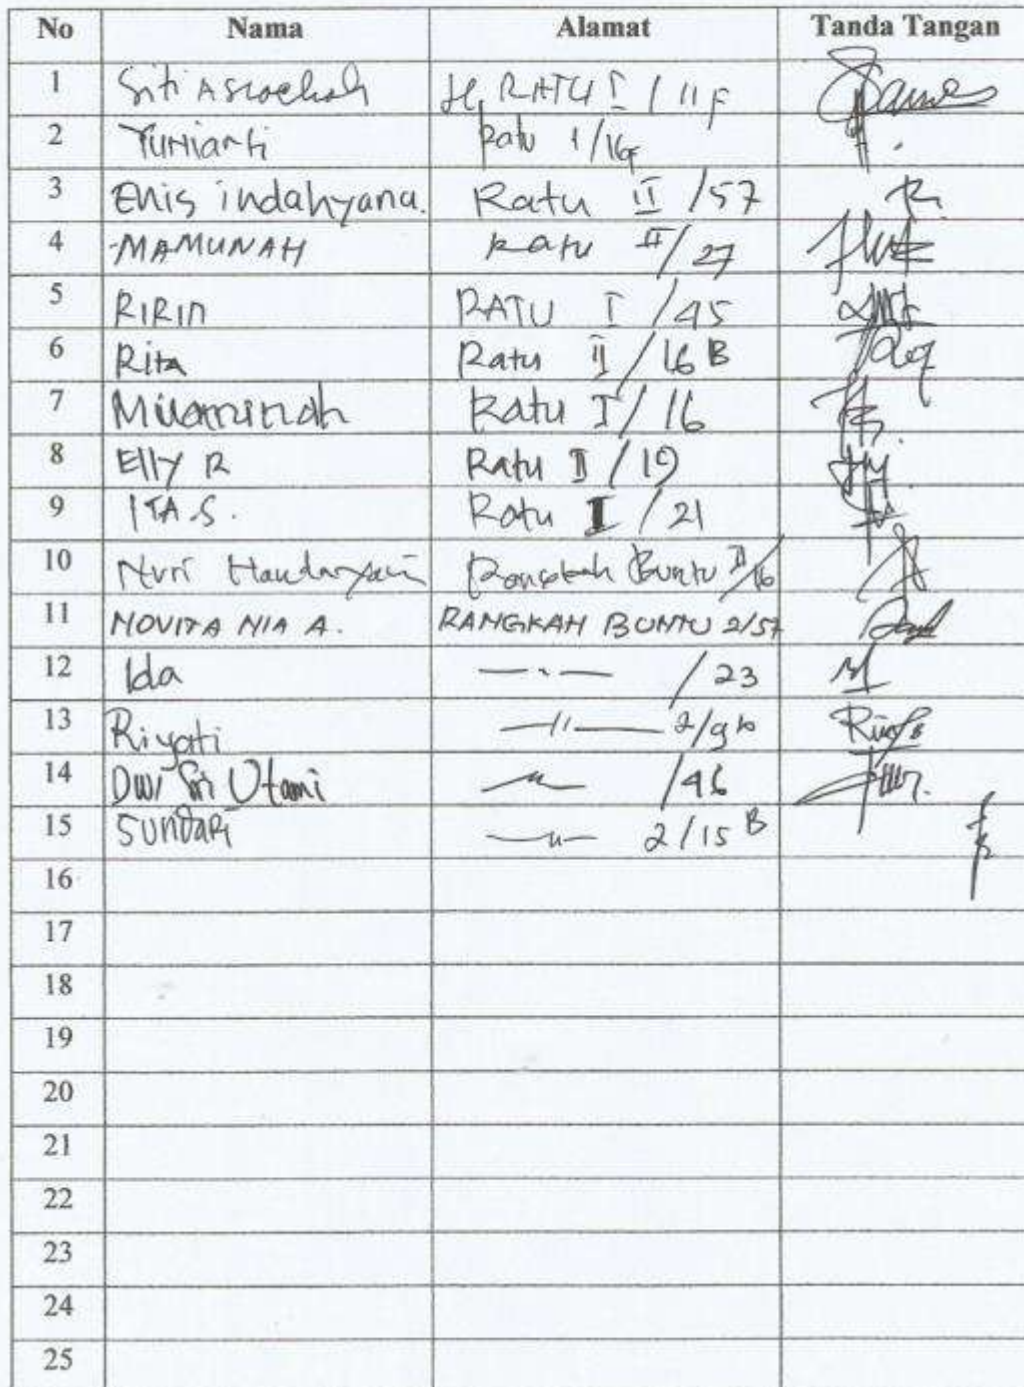 No Nama Alamat Tanda Tangan
1 Siti Asrochah Jl. RATU I / 11 F
2 Yuniarti Ratu 1/16F
3 Enis indahyana. Ratu II /57
4 MAMUNAH Ratu II/27
5 RIRIN RATU I /45
6 Rita Ratu II /16 B
7 Ratu I/16
8 Elly R Ratu II /19
9 ITA.S. Ratu I /21
10 Nuri Handayani Rangkah Buntu II/16
11 NOVITA NIA A. RANGKAH BUNTU 2/57
12 Ida —·— /23
13 Riyati —11— 2/9b
14 Dwi Sri Utami —"— /46
15 SUNDARI —"— 2/15 B
16
17
18
19
20
21
22
23
24
25